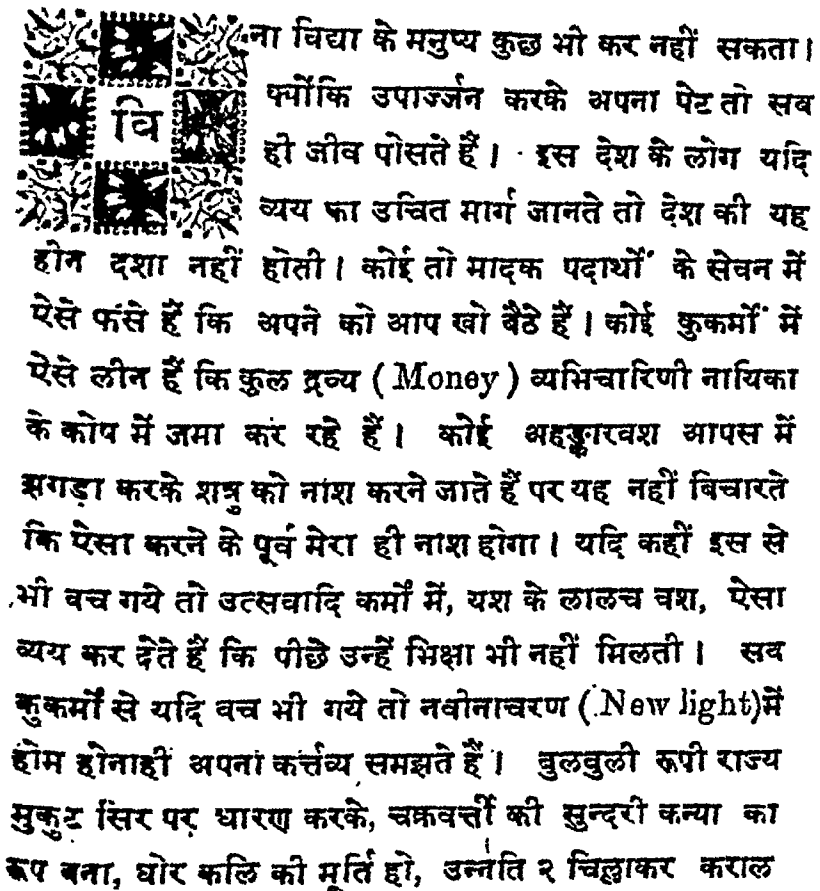 विना विद्या के मनुष्य कुछ भी कर नहीं सकता।
क्योंकि उपार्ज्जन करके अपना पेट तो सब
ही जीव पोसते हैं। इस देश के लोग यदि
व्यय का उचित मार्ग जानते तो देश की यह
हीन दशा नहीं होती। कोई तो मादक पदार्थों के सेवन में
ऐसे फंसे हैं कि अपने को आप खो बैठे हैं। कोई कुकर्मों में
ऐसे लीन हैं कि कुल द्रव्य (Money) व्यभिचारिणी नायिका
के कोप में जमा कर रहे हैं। कोई अहङ्कारवश आपस में
झगड़ा करके शत्रु को नाश करने जाते हैं पर यह नहीं बिचारते
कि ऐसा करने के पूर्व मेरा ही नाश होगा। यदि कहीं इस से
भी वच गये तो उत्सवादि कर्मों में, यश के लालच वश, ऐसा
व्यय कर देते हैं कि पीछे उन्हें भिक्षा भी नहीं मिलती। सब
कुकर्मों से यदि वच भी गये तो नवीनाचरण (New light)में
होम होनाही अपना कर्त्तव्य समझते हैं। बुलबुली रूपी राज्य
मुकुट सिर पर धारण करके, चक्रवर्त्ती की सुन्दरी कन्या का
रूप बना, घोर कलि की मूर्ति हो, उन्नति २ चिल्लाकर कराल